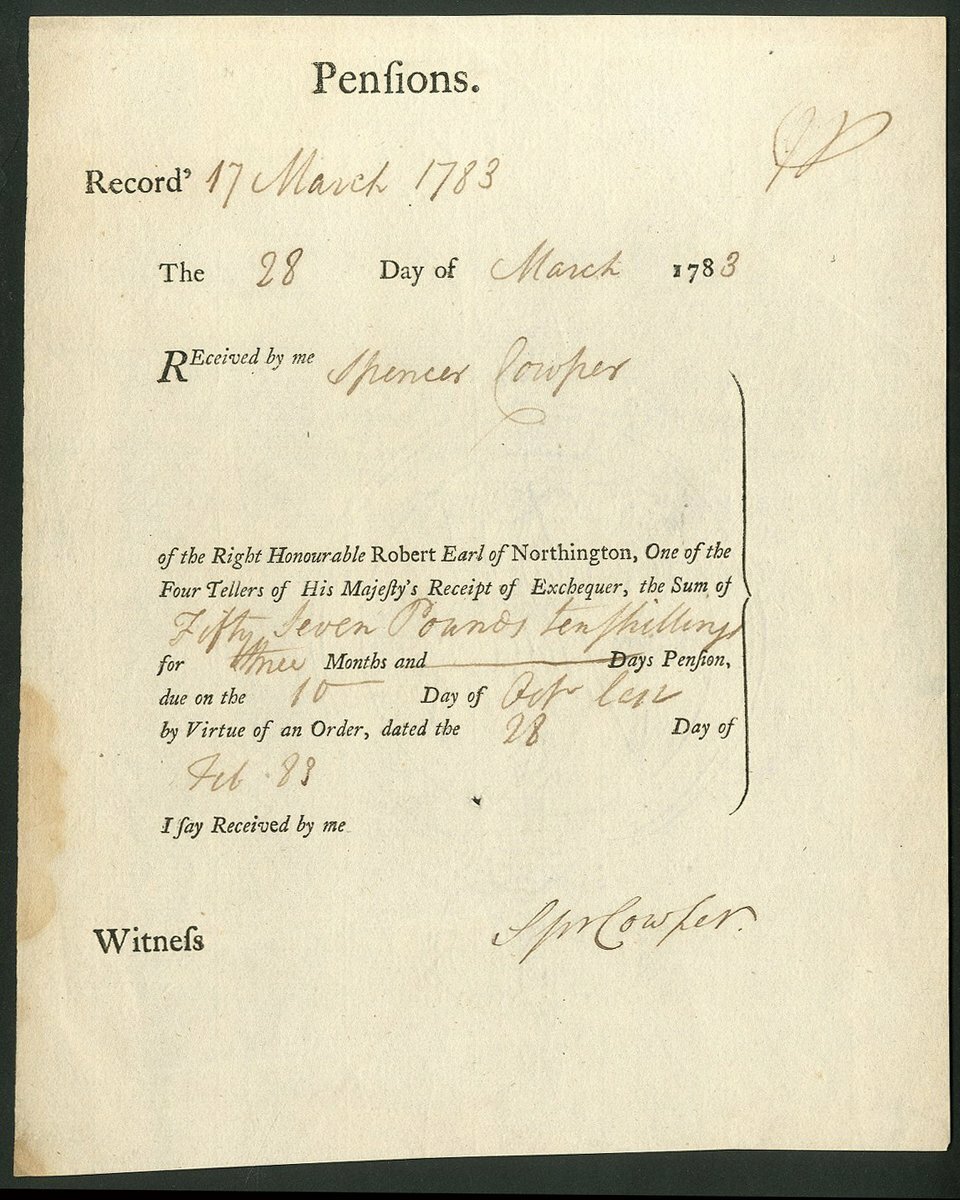 Penſions.
Record' 17 March 1783
The 28 Day of March 1783
REceived by me Spencer Cowper
of the Right Honourable Robert Earl of Northington, One of the
Four Tellers of His Majeſty's Receipt of Exchequer, the Sum of
Fifty Seven Pounds ten ſhillings
for three Months and Days Penſion,
due on the 10 Day of Octr last
by Virtue of an Order, dated the 28 Day of
Feb 83
I ſay Received by me
Witneſs Spr Cowper